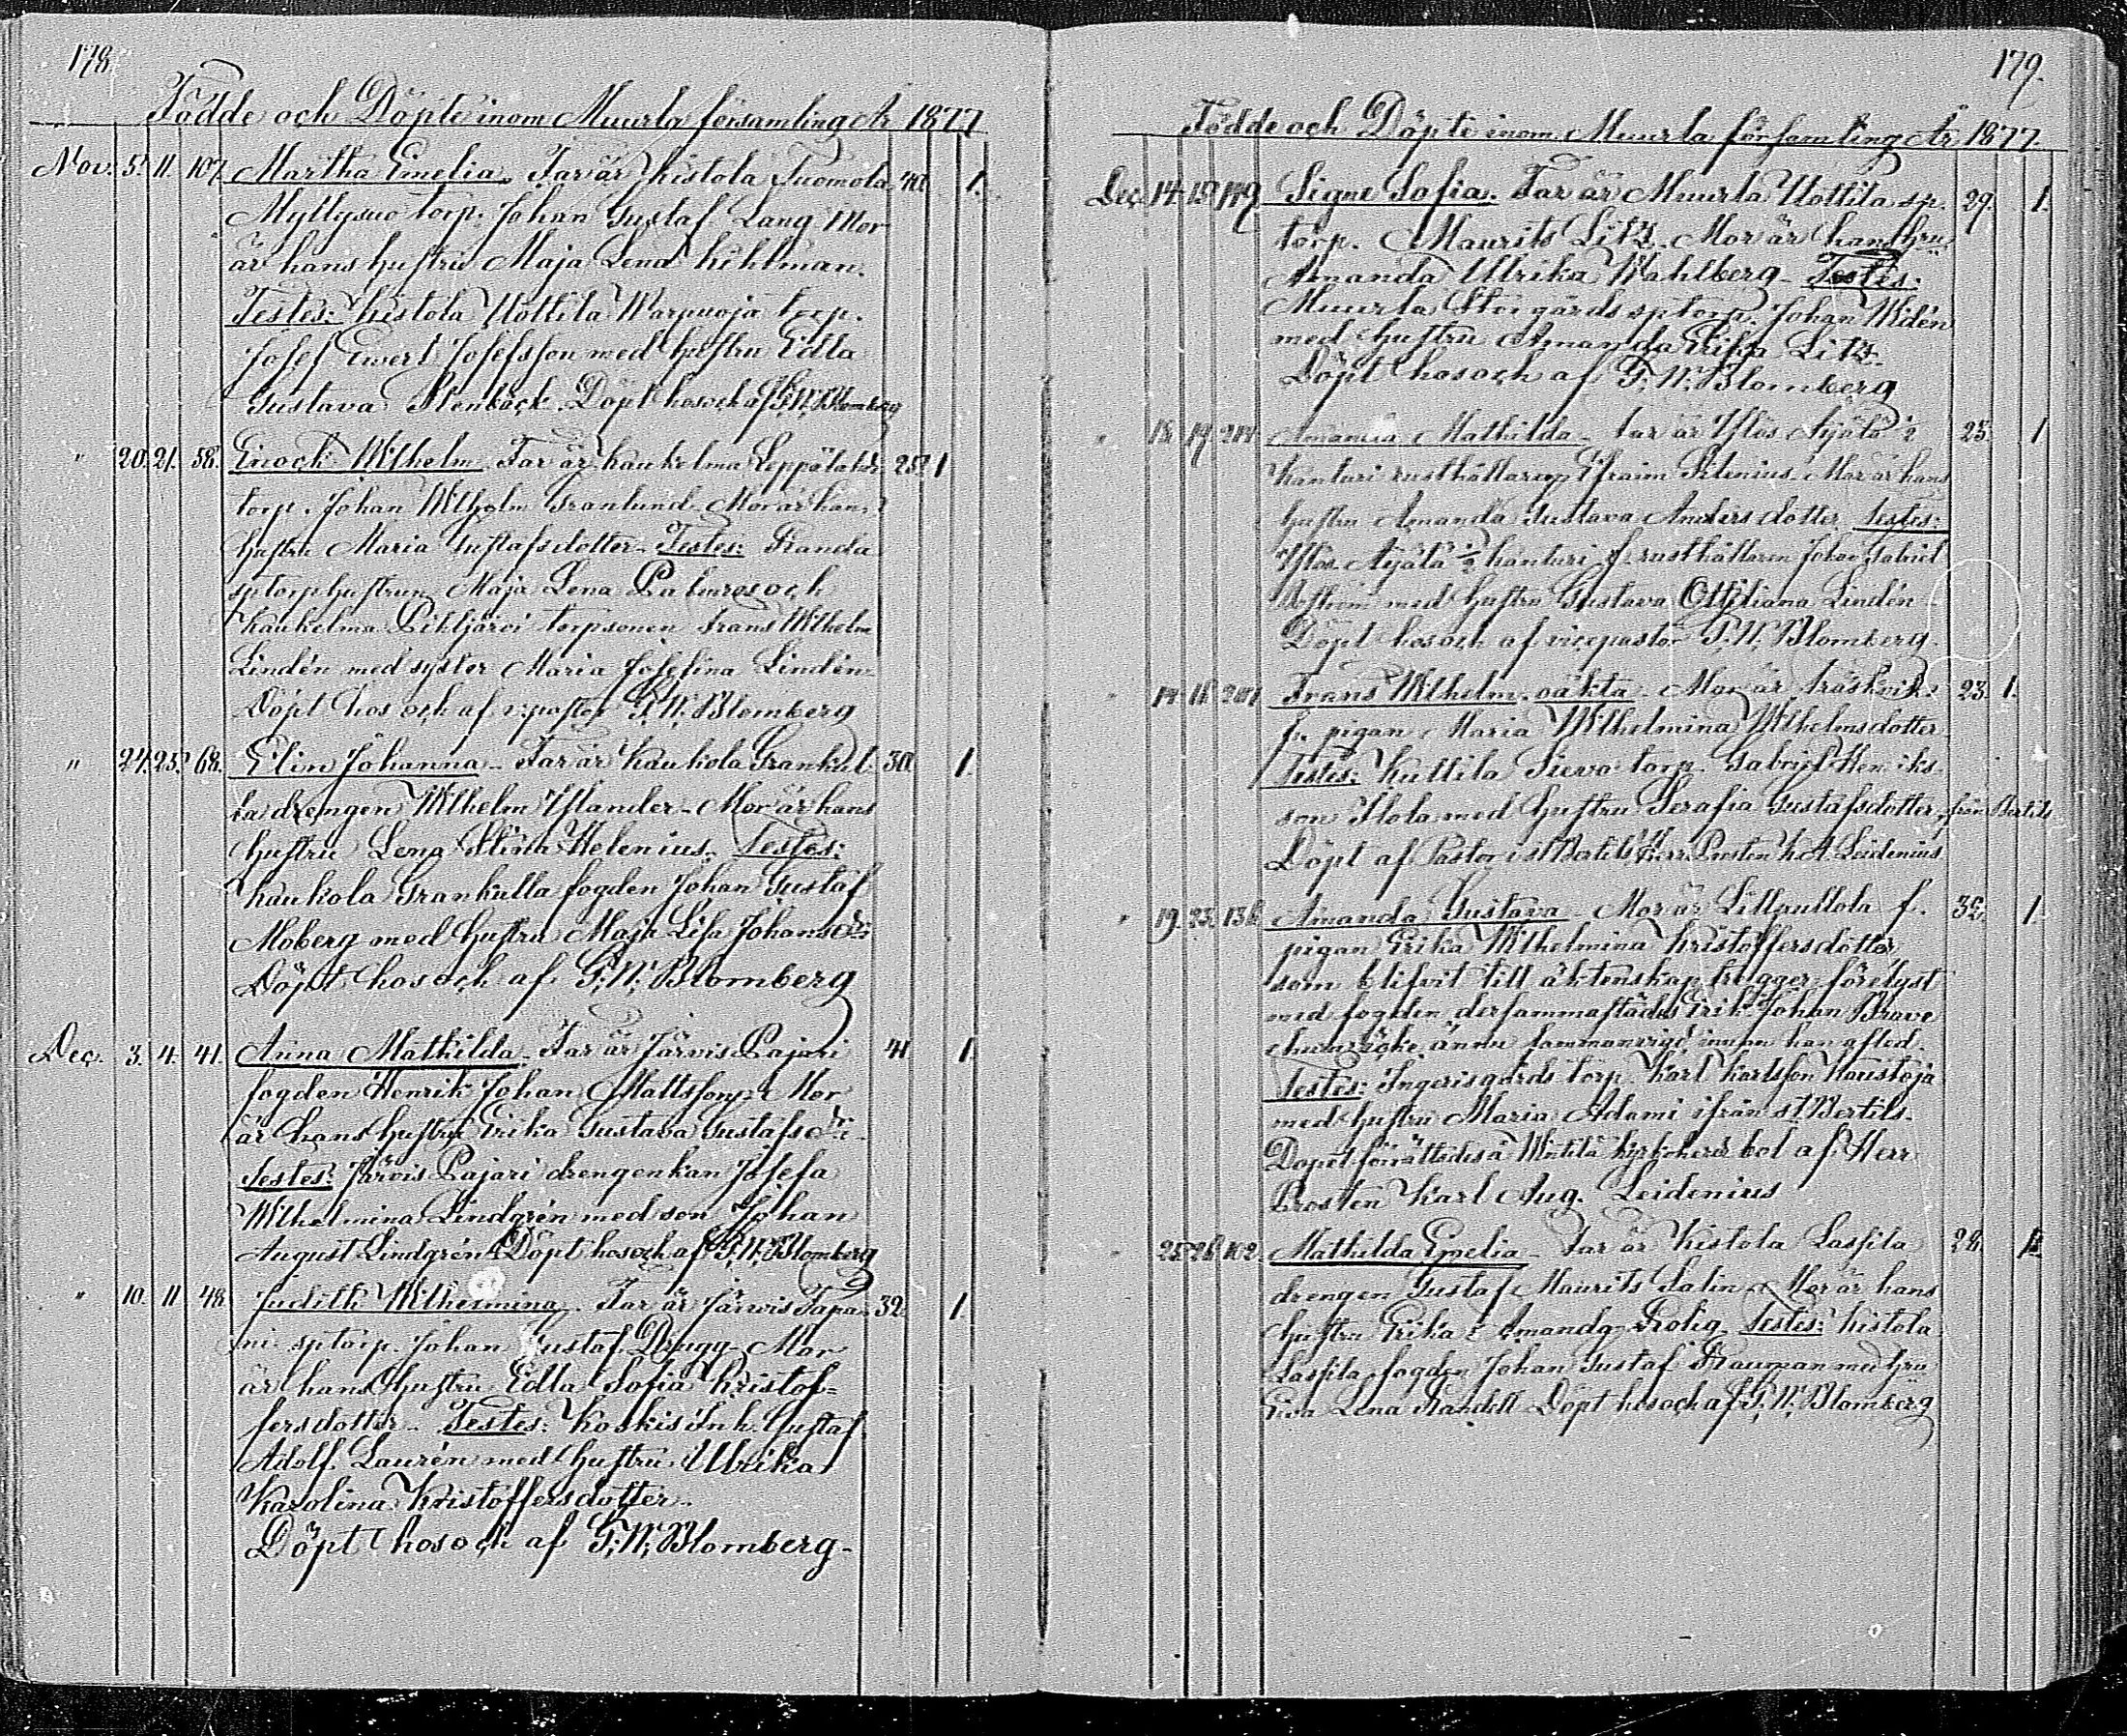 178
Födde och Döpte inom Muurla församling År 1877
Nov. 5. 11. 107. Martha Emelia. Far är Kistola Tuomola 40. 1.
Myllysuo torp. Johan Gustaf Lang Mor
är hans hustru Maja Lena Kihlman.
Testes: Kistola Uottila Warpuoja torp.
Josef Ewert Josefsson med hustru Edla
Gustava Stenback. Döpt hos och af F. W. Blomberg
" 20. 21. 58. Enock Wilhelm Far är Kaukelma 25. 1
torp. Johan Wilhelm Granlund. Mor är hans
hustru Maria Gustafsdotter. Testes: Randa
sptorphustrun Maja Lena och
Kaukelma Pitkjärvi torpsonen Frans Wilhelm
Lindén med syster Maria Josefina Lindén
Döpt hos och af v: pastor F. W. Blomberg
" 24. 25. 68. Elin Johanna. Far är Kaukola Grankul- 30. 1.
la drengen Wilhelm Ylander. Mor är hans
hustru Lena Stina Helenius. Testes:
Kaukola Grankulla fogden Johan Gustaf
Moberg med hustru Maja Lisa Johansd:r
Döpt hos och af F. W. Blomberg
Dec. 3. 4. 41. Anna Mathilda. Far är Järvis Pajari 41. 1.
fogden Henrik Johan Mattsson. Mor
är hans hustru Erika Gustava Gustafsd:r.
Testes: Järvis Pajari drengenkan Josefa
Wilhelmina Lindgrén med son Johan
August Lindgrén. Döpt hos och af F. W. Blomberg
" 10. 11 48. Judith Wilhelmina. Far är Järvis Tapa- 32. 1.
ni sptorp. Johan Gustaf Drugg. Mor
är hans hustru Edla Sofia Kristof=
fersdotter. Testes: Koskis Inh. Gustaf
Adolf Laurén med hustru Ulrika
Karolina Kristoffersdotter.
Döpt hos och af F. W. Blomberg.
179.
Födde och Döpte inom Muurla församling År 1877.
Dec. 14. 15. 119. Signe Sofia. Far är Muurla Uottila sp. 29. 1.
torp. Maurits Litz. Mor är hans hru
Amanda Ulrika Wahlberg. Testes:
Muurla Storgårds sptorp. Johan Widén
med hustru Amanda Erika Litz.
Döpt hos och af F. W. Blomberg
" 18. 19. Amanda Mathilda. Far är Ylös Äijälä 25. 1
Kanturi rusthållaren Efraim Silenius. Mor är hans
hustru Amanda Gustava Andersdotter Testes:
Ylös Äijälä ½ Kanturi f. rusthållaren Johan Gabriel
med hustru Gustava Ottiliana Lindén
Döpt hos och af vicepastor F. W. Blomberg.
" 14. 16. 201 Frans Wilhelm. oäkta. Mor är 23. 1.
f. pigan Maria Wilhelmina Wilhelmsdotter.
Testes: Kuttila Sievo torp. Gabriel Henriks-
son Ilola med hustru Serafia Gustafsdotter, från Bertils
Döpt af Pastor i St Bertils Herr Prosten K. A. Leidenius
" 19. 23. 136. Amanda Gustava. Mor är Lillpullola f. 32. 1.
pigan Erika Wilhelmina Kristoffersdotter,
som blifvit till äktenskap tregger förelyst
med fogden dersammastädes Erik Johan Brave
ehuru icke ännu sammanvigd innan han afled.
Testes: Ingerisgårds torp. Karl Karlsson Haustoja
med hustru Maria Adami ifrån St Bertils.
Dopet förrättades å Wintilä kyrkoherde bol af Herr
Prosten Karl Aug. Leidenius
" 25. 26. 102. Mathilda Emelia. Far är Kistola Lassila 28. 1.
drengen Gustaf Maurits Salin. Mor är hans
hustru Erika Amanda Rolig. Testes: Kistola
Lassila fogden Johan Gustaf Rauman med hru
Eva Lena Randell. Döpt hos och af F. W. Blomberg